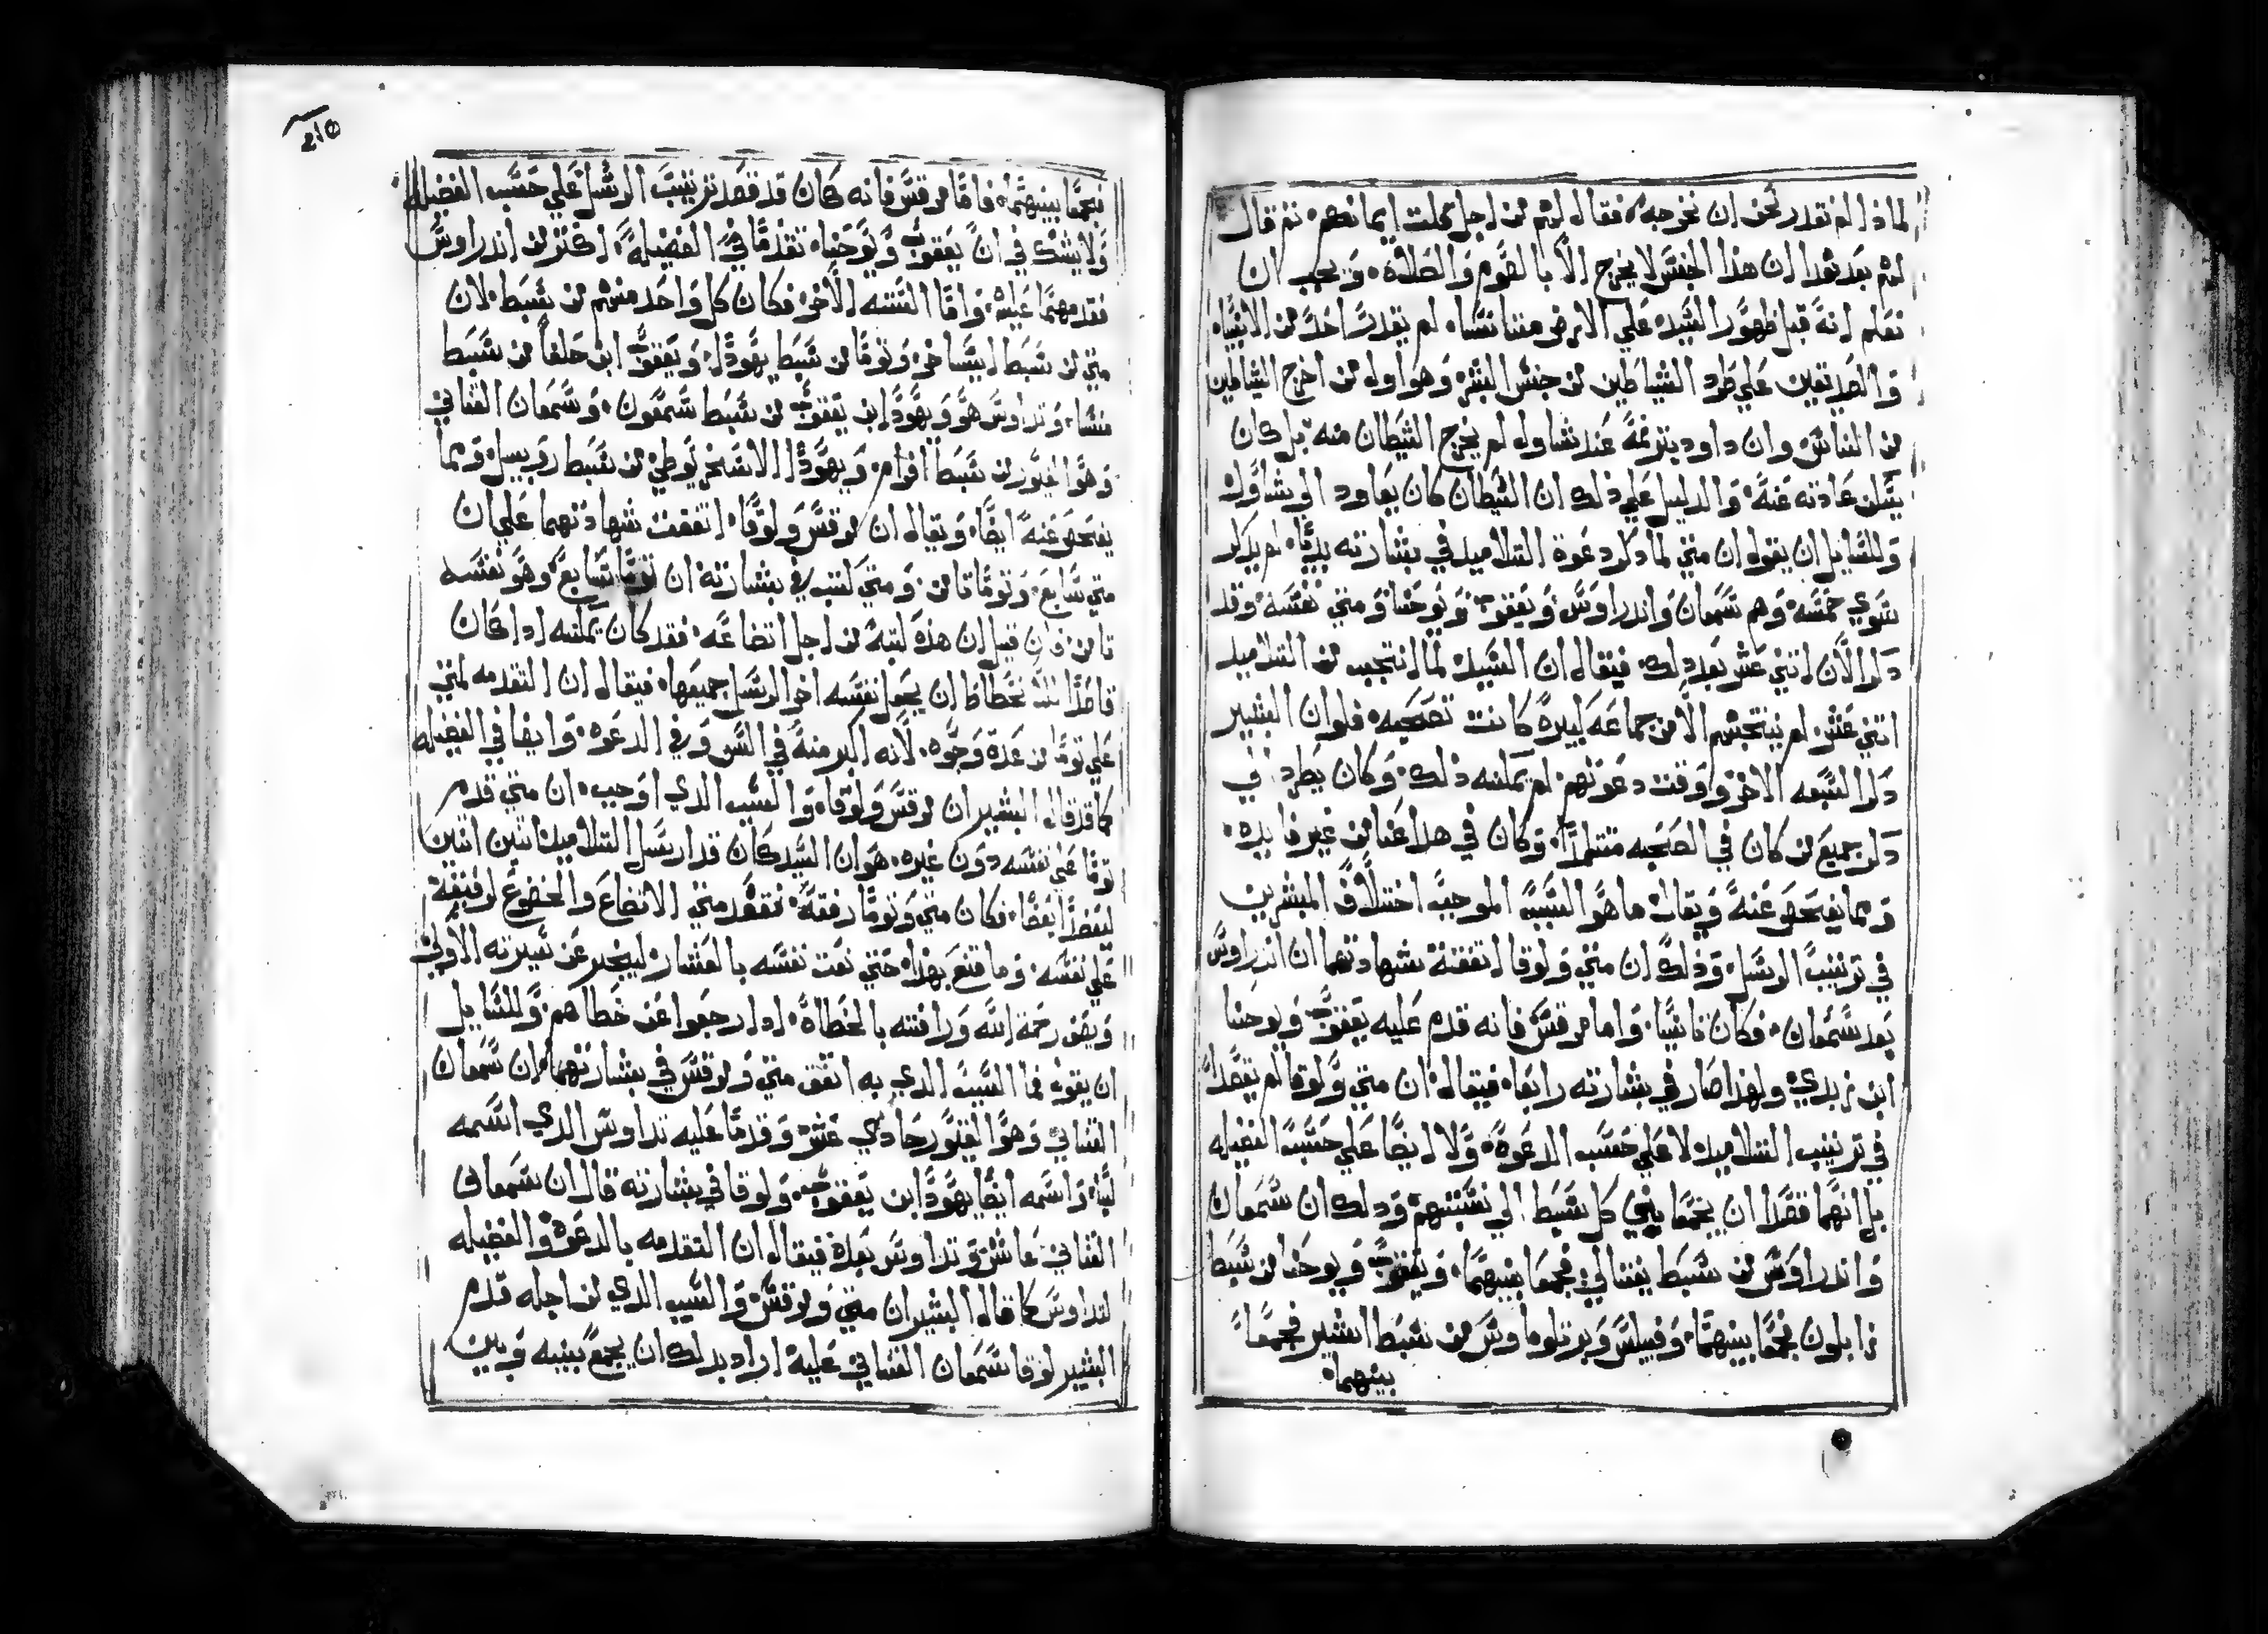 لماذا لم نقدر نحن ان نخرجه فقال لهم من اجل قلت ايمانهم ثم قال
لهم بعد هذا ان هذا الجنس لا يخرج الا بالصوم والصلاة ويجب ان
نعلم انه قبل ظهور السيد على الارض متانسا لم يقدر احد من الانبيا
والصديقين على طرد الشياطين من جنس البشر وهو اول من اخرج الشياطين
من الناس وان داود بترنمه عند شاول لم يخرج الشيطان منه بل كان
عادته عنه والدليل على ذلك ان الشيطان كان يعاود الى شاول
وللسايل ان يقول ان متي لما ذكر دعوة التلاميد في بشارته لم يذكر
سوي خمسه وهم سمعان واندراوس ويعقوب ويوحنا ومتي نفسه وقد
ذكر الان اتني عشر بعد ذلك فيقال ان السيد لما انتجب من التلاميد
اتني عشر لم ينتجبهم الا من جماعه كبيرة كانت تصحبه فلو ان البشير
ذكر السبعه الاخر ووقت دعوتهم لم يمكنه ذلك وكان يطرد في
ذكر جميع من كان في الصحبه متتلمدا وكان في هدا عنا من غير فايده
ومما يفحص عنه ويقال ما هو السبب الموجب اختلاف المبشرين
في ترتيب الرسل وذلك ان متي ولوقا اتفقت شهادتهما ان اندراوس
بعد سمعان فكان تانيا واما مرقس فانه قدم عليه يعقوب ويوحنا
ابن زبدي ولهذا صار في بشارته رابعا فيقال ان متي ولوقا لم يقصدا
في ترتيب التلاميد لا على حسب الدعوة ولا ايضا على حسب الفضيله
بل انهما قصدا ان يجمعا بني كل سبط الى نسبتهم ودلك ان سمعان
واندراوس من سبط نفتالي فجمعا بينهما ويعقوب ويوحنا من سبط
زابلون فجمعا بينهما وفيلبس وبرتلوماوس من سبط اشير فجمعا
بينهما
فجمعا بينهما فاما مرقس فانه كان قد قصد ترتيب الرسل على حسب الفضيله
ولا يشك في ان يعقوب ويوحنا تقدما في الفضيله اكثر من اندراوس
فقدمهما عليه واما الستة الاخر فكان كل واحد منهم من سبط لان
متي من سبط ايساخر وتوما من سبط يهودا ويعقوب ابن حلفا من سبط
منسا وتداوس هو ويهودا ابن يعقوب من سبط سمعون وسمعان القناني
وهو الغيور من سبط افرام ويهودا الاسخريوطي من سبط روبيل ومما
يفحص عنه ايضا ويقال ان مرقس ولوقا اتفقت شهادتهما على ان
متي سابع وتوما تامن ومتي كتب في بشارته ان توما سابع وهو نفسه
تامن فان قيل ان هذه كتبه من اجل اتضاعه فقد كان يمكنه ادا كان
قاصدا للانحطاط ان يجعل نفسه اخر الرسل جميعها فيقال ان التقدمه لمتي
على توما من عدة وجوه لانه اكبر منه في السن وفي الدعوه وايضا في الفضيله
كما قد قال البشيران مرقس ولوقا والسبب الدي اوجب ان متي قدم
توما على نفسه دون غيره هو ان السيد كان قد ارسل التلاميد اتنين اتنين
لبعضا بعضا فكان متي وتوما رفقة فقصد متي الاتضاع والخضوع لرفيقه
على نفسه وما قنع بهذا حتي نعت نفسه بالعشار ليخبر عن سيرته الاولي
ويصف رحمة الله ورافته بالخطاة ادا رجعوا عن خطاهم وللسايل
ان يقول فما السبب الدي به اتفق متي ومرقس في بشارتهما ان سمعان
القناني وهو الغيور حادي عشر وقدما عليه تداوس الدي اسمه
لبا واسمه ايضا يهودا ابن يعقوب ولوقا في بشارته قال ان سمعان
القناني عاشر وتداوس بعده فيقال ان التقدمه بالدعوة والفضيله
لتداوس كما قال البشيران متي ومرقس والسبب الدي من اجله قدم
البشير لوقا سمعان القناني عليه اراد بدلك ان يجمع بينه وبين